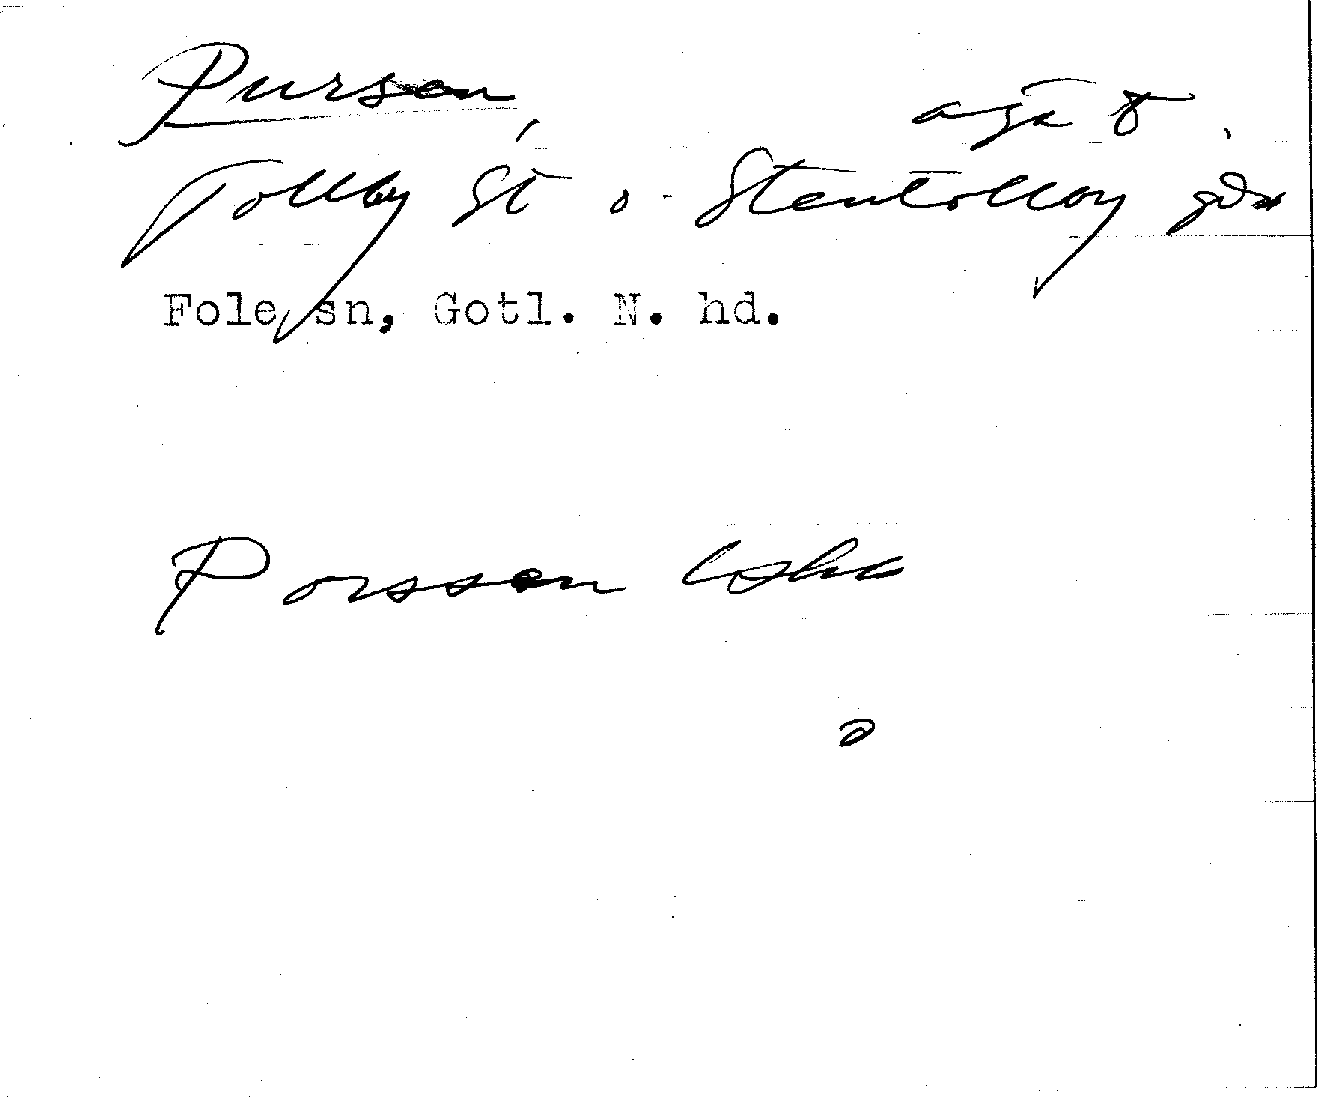 Pursen, äga t.
Tollby St o. Stentollby gdr
Fole sn, Gotl. N. hd.
Porssen